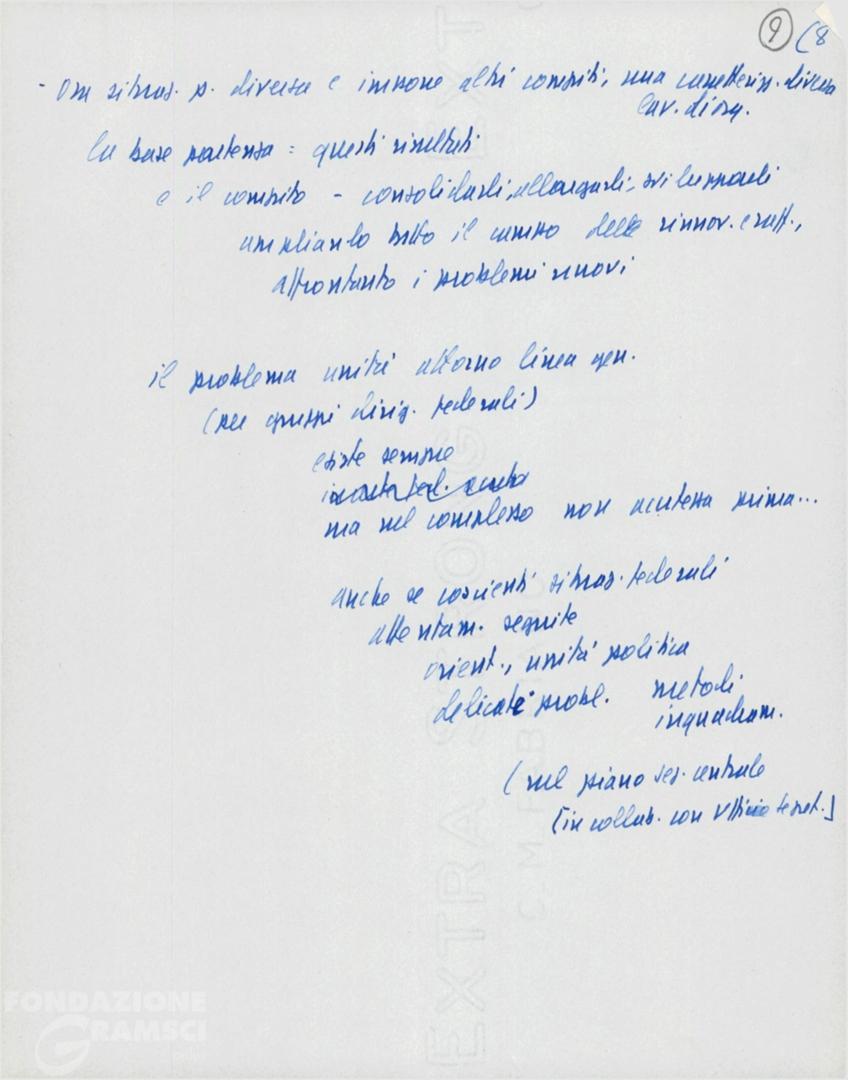 9 (8
- Ora situaz. p. diversa e impone altri compiti, una caratterizz. diversa
lav. diorg.
la base partenza = questi risultati
e il compito - consolidarli, allargarli, svilupparli
ampliando tutto il campo della rinnov. e raff.,
affrontanto i problemi nuovi
il problema unità attorno linea gen.
(nei gruppi dirig. federali)
esiste sempre
ma nel complesso non acutezza prima...
anche se coscienti situaz. federali
attentam. seguite
orient., unità politica
delicate probl. metodi
inquadram.
(nel piano sez. centrale
[in collab. con Ufficio segret.]
EXTRA STRONG
EXT
C. M. FABRIANO
FONDAZIONE
GRAMSCI